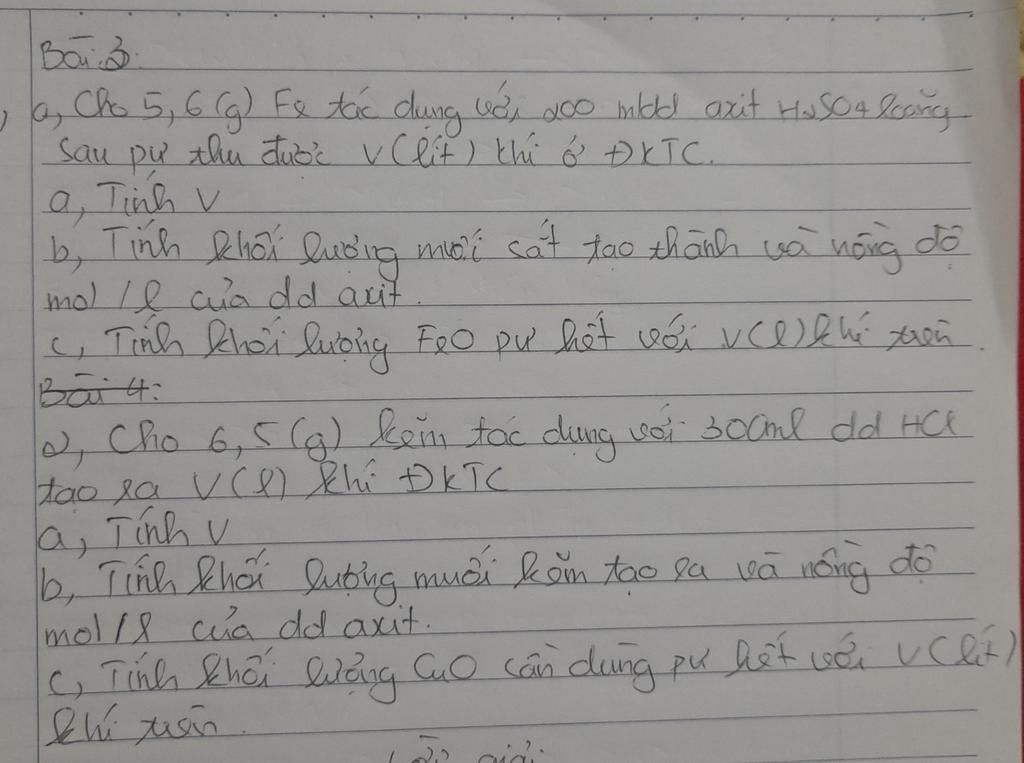 Bài 3:
a, Cho 5,6 (g) Fe tác dụng với 200 mldd axit H2SO4 loãng
Sau pư thu được V (lít) khí ở ĐKTC.
a, Tính V
b, Tính khối lượng muối sắt tạo thành và nồng độ
mol /l của dd axit.
c, Tính khối lượng FeO pư hết với V(l) khí trên.
Bài 4:
a, Cho 6,5 (g) kẽm tác dụng với 300ml dd HCl
tạo ra V(l) khí ĐKTC
a, Tính V
b, Tính khối lượng muối kẽm tạo ra và nồng độ
mol/l của dd axit.
c, Tính khối lượng CuO cần dùng pư hết với V(lít)
khí trên.
giải